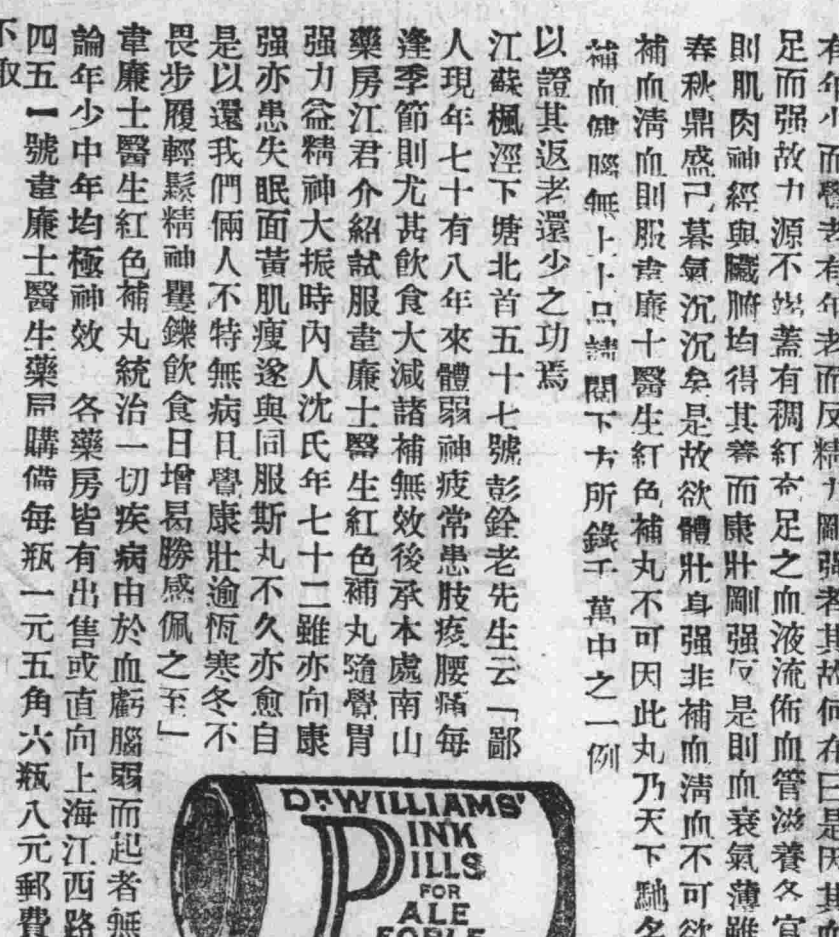 有年少而 者有年老而反精力剛强者其故何在曰是因其血
足而强故力源不竭蓋有稠紅充足之血液流佈血管滋養各官
則肌肉神經與臟腑均得其養而康壯剛强反是則血衰氣薄雖
春秋鼎盛已暮氣沉沉矣是故欲體壯身强非補血淸血不可欲
補血淸血則服韋廉士醫生紅色補丸不可因此丸乃天下馳名
補血健腦無上上品請閱下方所錄千萬中之一例
以證其返老還少之功焉
江蘇楓涇下塘北首五十七號彭銓老先生云「鄙
人現年七十有八年來體弱神疲常患肢痠腰痛每
逢季節則尤甚飲食大減諸補無效後承本處南山
藥房江君介紹試服韋廉士醫生紅色補丸隨覺胃
强力益精神大振時內人沈氏年七十二雖亦向康
强亦患失眠面黃肌瘦遂與同服斯丸不久亦愈自
是以還我們倆人不特無病且覺康壯逾恆寒冬不
畏步履輕鬆精神矍鑠飲食日增曷勝感佩之至」
韋廉士醫生紅色補丸統治一切疾病由於血虧腦弱而起者無
論年少中年均極神效 各藥房皆有出售或直向上海江西路
四五一號韋廉士醫生藥局購備每瓶一元五角六瓶八元郵費
不取
DR WILLIAMS'
PINK
PILLS
FOR
PALE
PEOPLE